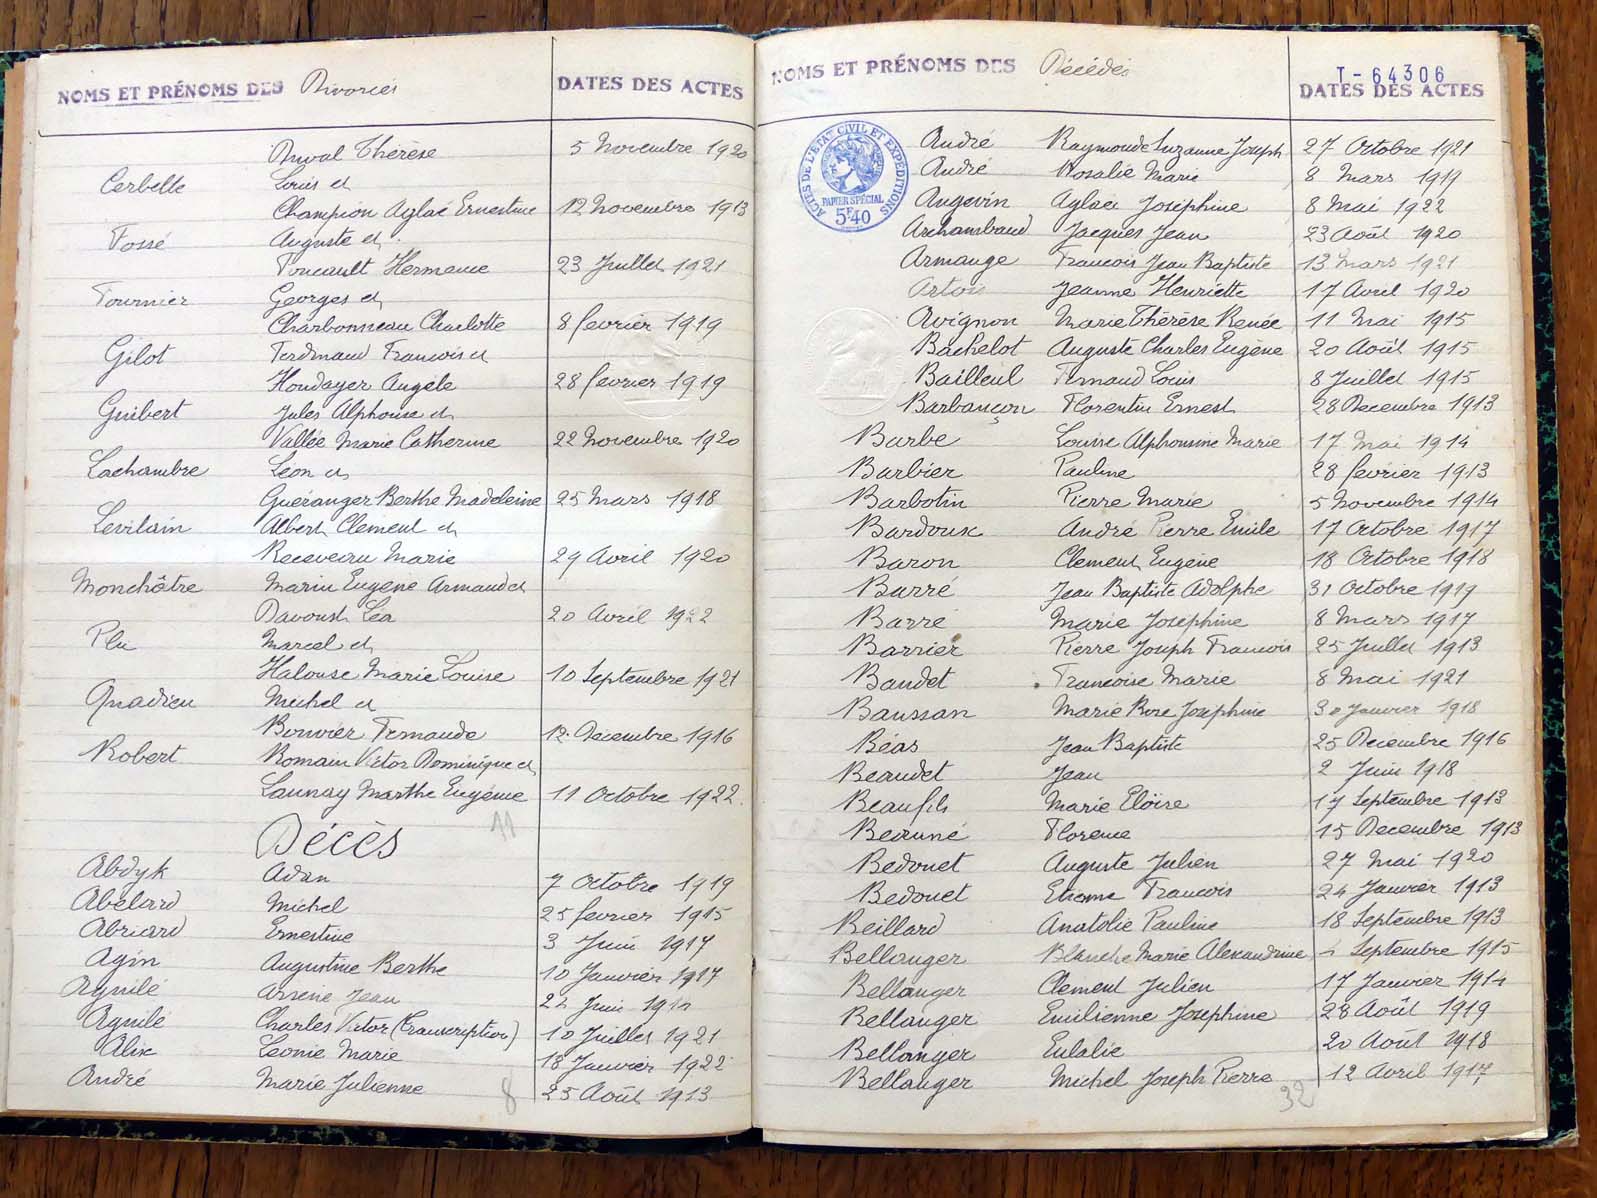 NOMS ET PRÉNOMS DES Divorcés DATES DES ACTES
Duval Thérèse 5 Novembre 1920
Cerbelle Louis et
Champion Aglaé Ernestine 12 Novembre 1913
Fossé Auguste et
Foucault Hermance 23 Juillet 1921
Fournier Georges et
Charbonneau Charlotte 8 fevrier 1919
Gilot Ferdinand Francois et
Houdayer Angéle 28 fevrier 1919
Guibert Jules Alphonse et
Vallée Marie Catherine 22 Novembre 1920
Lachambre Léon et
Guéranger Berthe Madeleine 25 Mars 1918
Levilain Albert Clement et
Receveau Marie 29 Avril 1920
Monchâtre Marin Eugene Armand et
Davoust Léa 20 Avril 1922
Plu Marcel et
Halouse Marie Louise 10 Septembre 1921
Quadieu Michel et
Bouvier Fernande 12 Decembre 1916
Robert Romain Victor Dominique et
Launay Marthe Eugénie 11 Octobre 1922
11
Décès
Abdyk Adan 7 Octobre 1919
Abélard Michel 25 fevrier 1915
Abriard Ernestine 3 Juin 1917
Agin Augustine Berthe 10 Janvier 1917
Aguilé Arsene Jean Juin
Aguilé Charles Victor (Transcription) 10 Juillet 1921
Alix Leonie Marie 18 Janvier 1922
André Marie Julienne 25 Août 1913
8
NOMS ET PRÉNOMS DES Décédés T-64306 DATES DES ACTES
ACTES DE L'ETAT CIVIL ET EXPEDITIONS
PAPIER SPÉCIAL
5F40
André Raymonde Suzanne Joseph 27 Octobre 1921
André Rosalie Marie 8 Mars 1919
Angevin Aglaé Joséphine 8 Mai 1922
Archambaud Jacques Jean 23 Août 1920
Armange Francois Jean Baptiste 13 Mars 1921
Artois Jeanne Henriette 17 Avril 1920
Avignon Marie Thérèse Renée 11 Mai 1915
Bachelot Auguste Charles Eugène 20 Août 1915
Bailleul Fernand Louis 8 Juillet 1915
Barbançon Florentin Ernest 28 Decembre 1913
Barbe Louise Alphonsine Marie 17 Mai 1914
Barbier Pauline 28 fevrier 1913
Barbotin Pierre Marie 5 Novembre 1914
Bardoux André Pierre Emile 17 Octobre 1917
Baron Clement Eugène 18 Octobre 1918
Barré Jean Baptiste Adolphe 31 Octobre 1919
Barré Marie Joséphine 8 Mars 1917
Barrier Pierre Joseph Francois 25 Juillet 1913
Baudet Francoise Marie 8 Mai 1921
Baussan Marie Rose Joséphine 30 Janvier 1918
Béas Jean Baptiste 25 Decembre 1916
Beaudet Jean 2 Juin 1918
Beaufils Marie Eloïse 17 Septembre 1913
Beauné Florence 15 Decembre 1913
Bedouet Auguste Julien 27 Mai 1920
Bedouet Etienne Francois 24 Janvier 1913
Beillard Anatolie Pauline 18 Septembre 1913
Bellanger Blanche Marie Alexandrine Septembre 1915
Bellanger Clement Julien 17 Janvier 1914
Bellanger Emilienne Josephine 28 Août 1919
Bellanger Eulalie 20 Août 1918
Bellanger Michel Joseph Pierre 12 Avril 1917
32